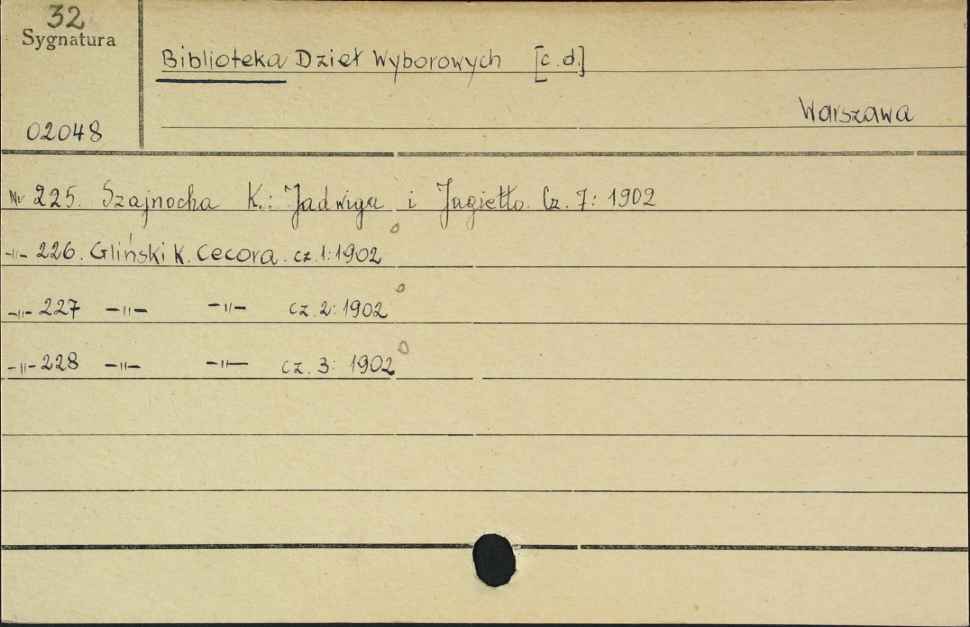 32
Sygnatura
Biblioteka Dzieł Wyborowych [c.d.]
Warszawa
02048
Nr 225. Szajnocha K.: Jadwiga i Jagiełło. Cz. 7: 1902
-"- 226. Gliński K. Cecora. cz. 1: 1902
-"- 227 -"- -"- cz. 2: 1902
-"- 228 -"- -"- cz. 3: 1902